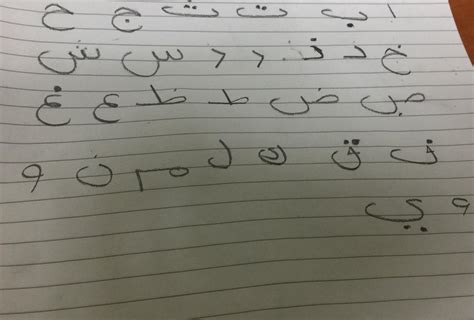 ا ب ت ث ج ح
خ د ذ د د س ش
ص ض ط ظ ع غ
ف ق ك ل م ن ه
و ي